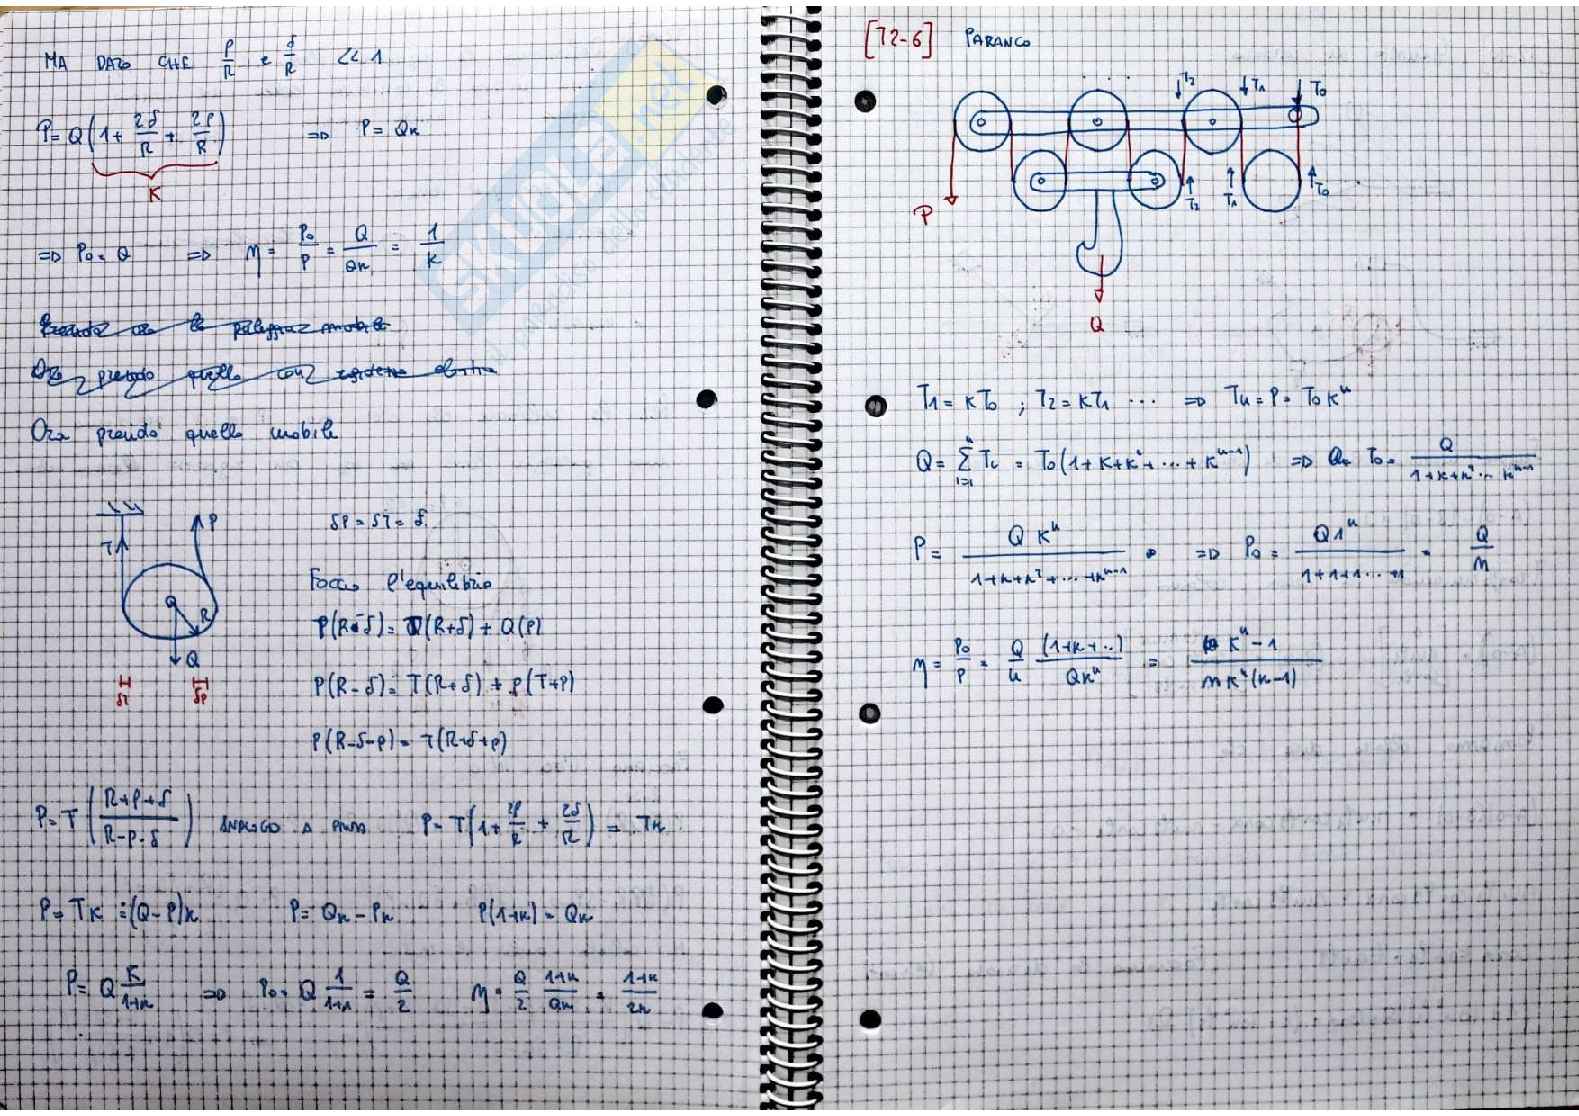 MA DATO CHE ρ/R e δ/R << 1
P = Q(1 + 2δ/R + 2ρ/R) => P = QK
K
=> P₀ = Q => η = P₀/P = Q/QK = 1/K
Ora prendo quello mobile
P
T
Q
R
Q
δT δP
δP = δT = δ
Faccio l'equilibrio
P(R-δ) = T(R+δ) + Q(ρ)
P(R-δ) = T(R+δ) + ρ(T+P)
P(R-δ-ρ) = T(R+δ+ρ)
P = T((R+ρ+δ)/(R-ρ-δ)) ANALOGO A PRIMA P = T(1 + 2ρ/R + 2δ/R) = TK
P = TK = (Q-P)K P = QK - PK P(1+K) = QK
P = Q K/(1+K) => P₀ = Q 1/(1+1) = Q/2 η = Q/2 (1+K)/QK = (1+K)/2K
[T2-6] PARANCO
T₂ T₁ T₀
T₂ T₁ T₀
P
Q
T₁ = KT₀ ; T₂ = KT₁ ... => Tn = P = T₀Kⁿ
Q = Σ Ti = T₀(1+K+K²+...+Kⁿ⁻¹) => T₀ = Q/(1+K+K²...Kⁿ⁻¹)
n
i=1
P = QKⁿ/(1+K+K²+...+Kⁿ⁻¹) => P₀ = Q1ⁿ/(1+1+1...+1) = Q/n
η = P₀/P = Q/n (1+K+..)/QKⁿ = (Kⁿ-1)/(nKⁿ(K-1))
SKUOLA.net